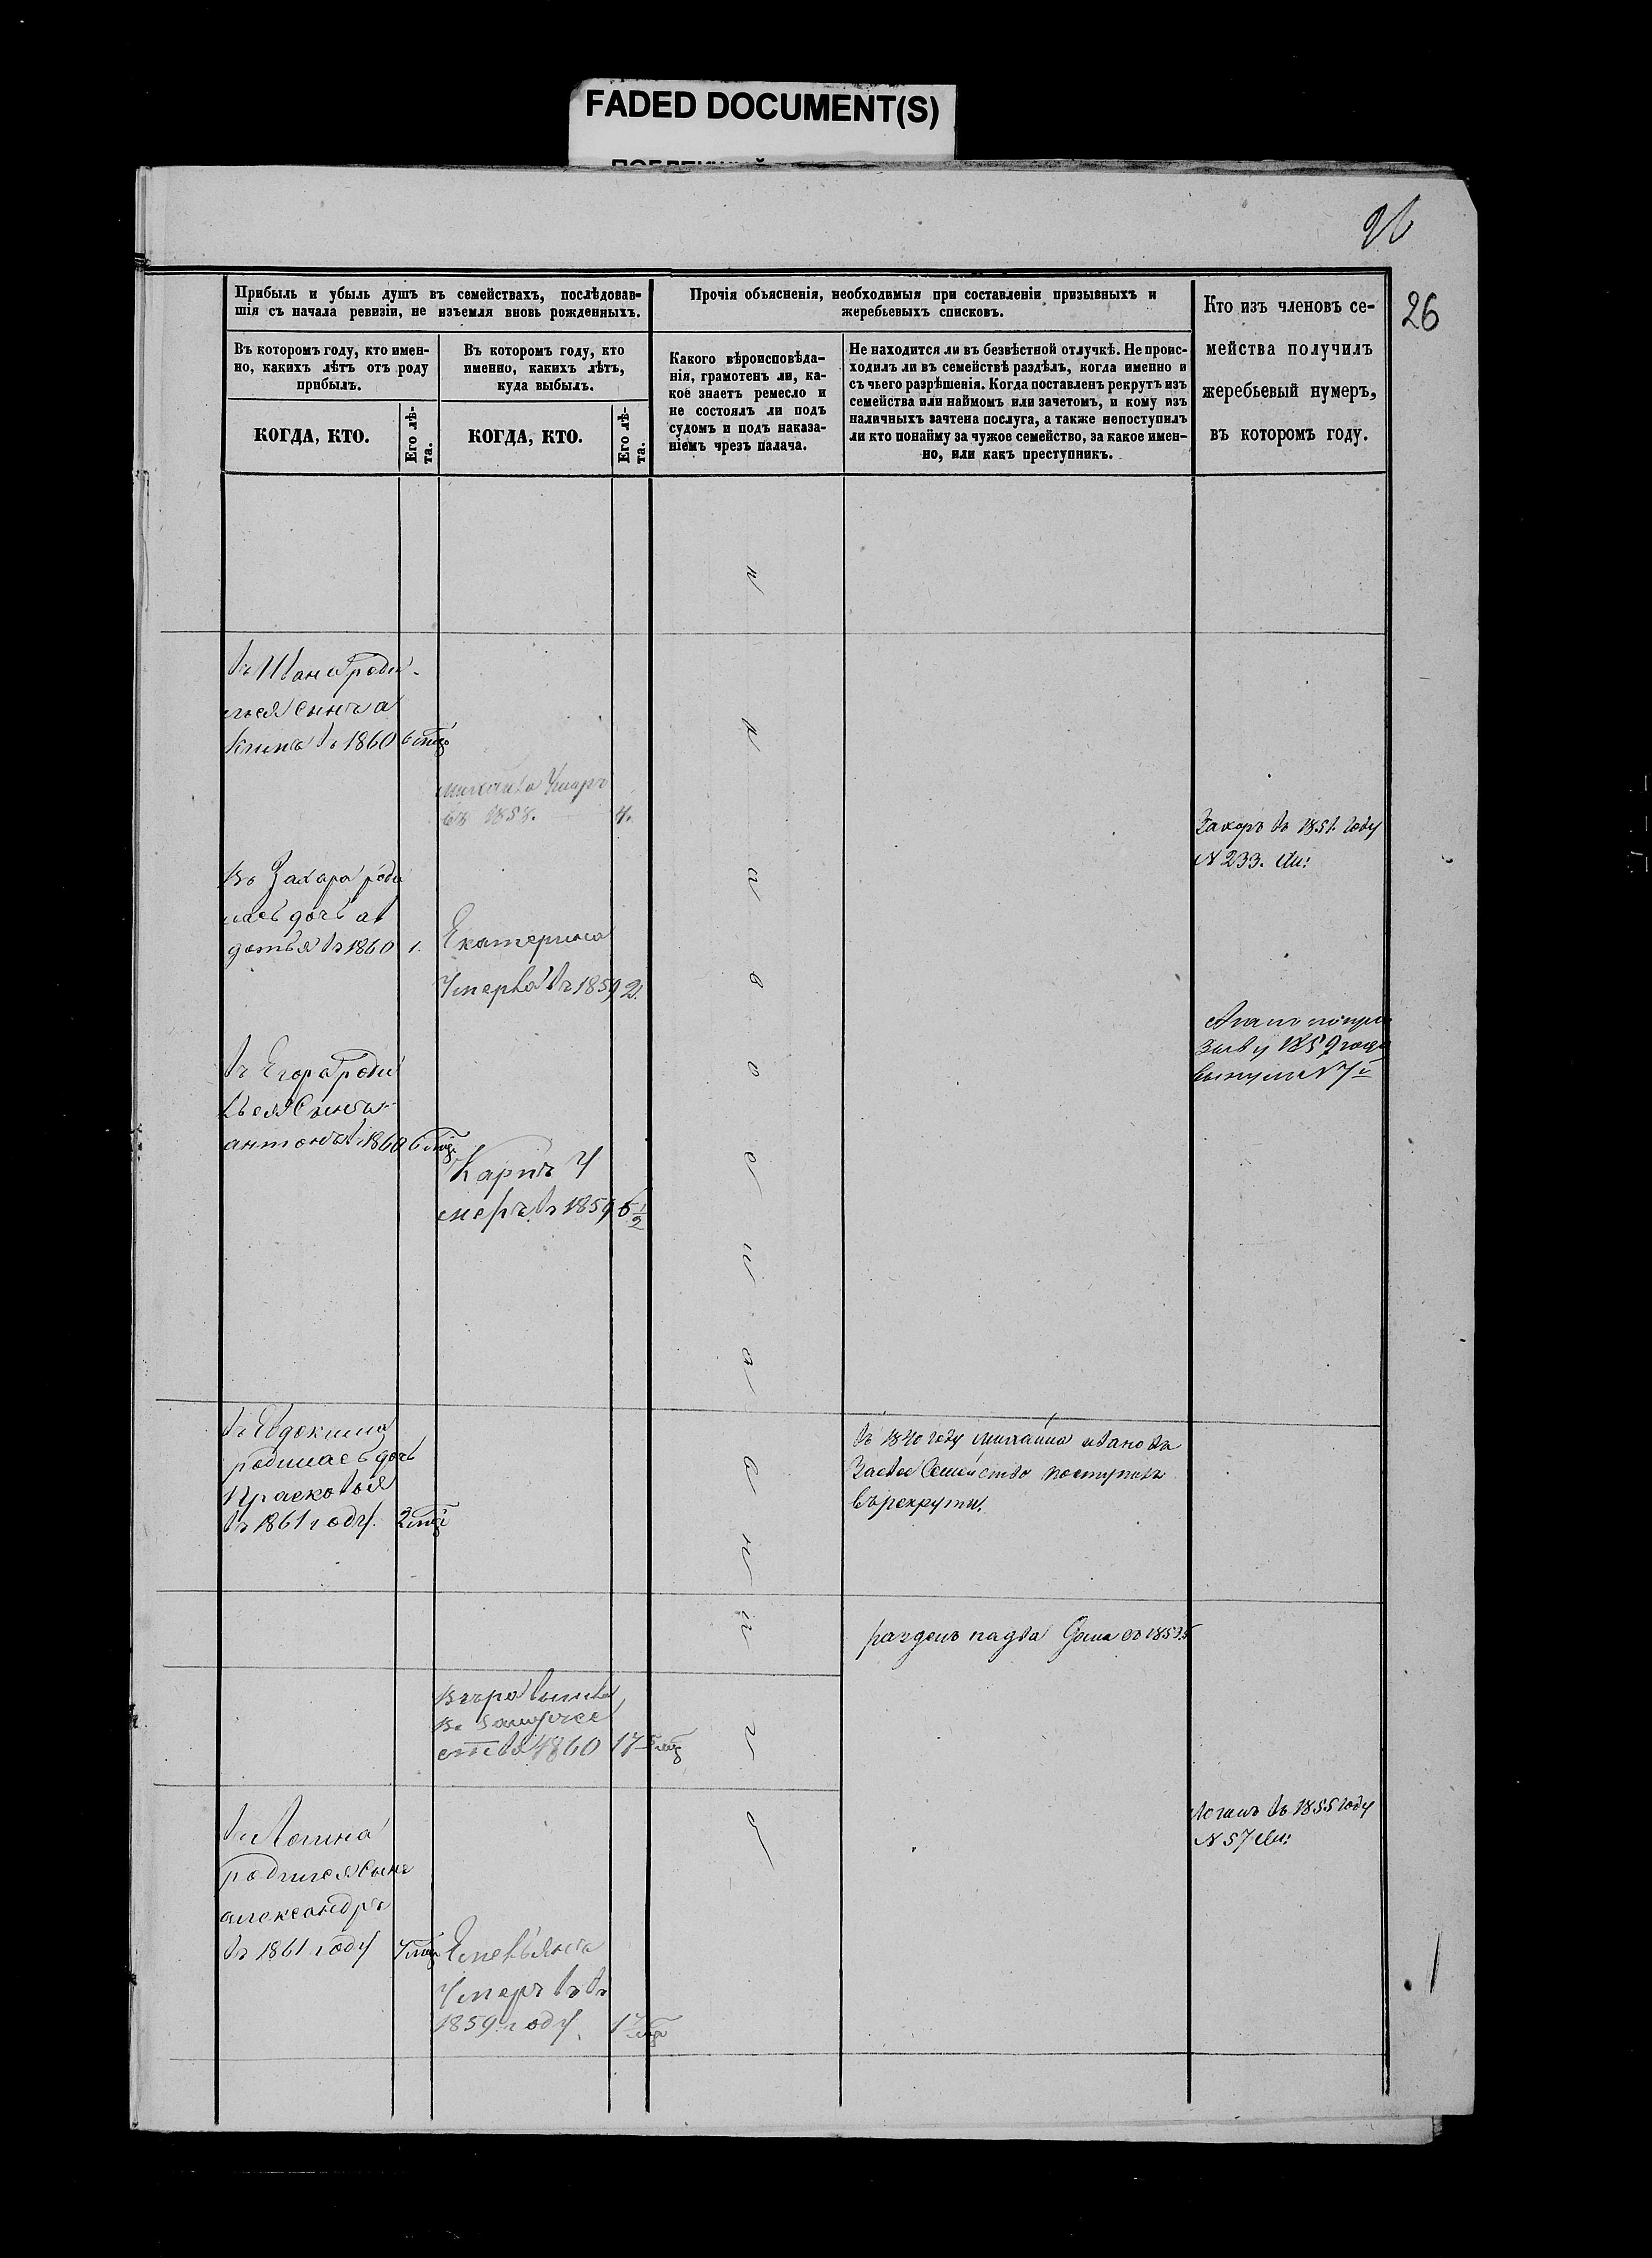 FADED DOCUMENT(S)
26
26
Прибыль и убыль душъ въ семействахъ, послѣдовав-
шія съ начала ревизіи, не изъемля вновь рожденныхъ.
Прочія объясненія, необходимыя при составленіи призывныхъ и
жеребьевыхъ списковъ.
Кто изъ членовъ се-
мейства получилъ
жеребьевый нумеръ,
въ которомъ году.
Въ которомъ году, кто имен-
но, какихъ лѣтъ отъ роду
прибылъ.
Въ которомъ году, кто
именно, какихъ лѣтъ,
куда выбылъ.
Какого вѣроисповѣда-
нія, грамотенъ ли, ка-
кое знаетъ ремесло и
не состоялъ ли подъ
судомъ и подъ наказа-
ніемъ чрезъ палача.
Не находится ли въ безвѣстной отлучкѣ. Не проис-
ходилъ ли въ семействѣ раздѣлъ, когда именно и
съ чьего разрѣшенія. Когда поставленъ рекрутъ изъ
семейства или наймомъ или зачетомъ, и кому изъ
наличныхъ зачтена послуга, а также непоступилъ
ли кто понайму за чужое семейство, за какое имен-
но, или какъ преступникъ.
КОГДА, КТО.
Его лѣ-
та.
КОГДА, КТО.
Его лѣ-
та.
роди-
лся сынъ а
кимъ въ 1860 6
умеръ
въ 1858. 4.
Захаръ въ 1851 году
N 233.
въ Захара роди
лась дочь ав
дотья въ 1860 1.
Екатерина
Умерла въ 1859 2.
1859 года
въ Егора роди
лся Сынъ
антонъ въ 1860 6
Карпъ У
меръ въ 1859 6 1/2
въ Евдокима
родилась дочь
Прасковья
въ 1861 году. 2
въ 1840 году Михаила Иванова
За свое Семейство поступилъ
въ рекруты.
въ 1853
вышла
въ замужес
ство 1860 17
въ Логина
родился Сынъ
александръ
въ 1861 году
въ 1855 году
N 57
Емельянъ
Умеръ въ
1859 году. 17
православнаго